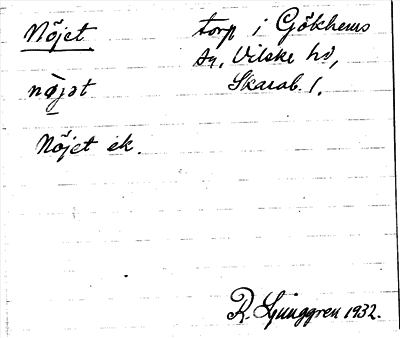 Nöjet torp i Gökhems
sn, Vilske hd,
nöjət Skarab. l.
Nöjet ek.
R. Ljunggren 1932.